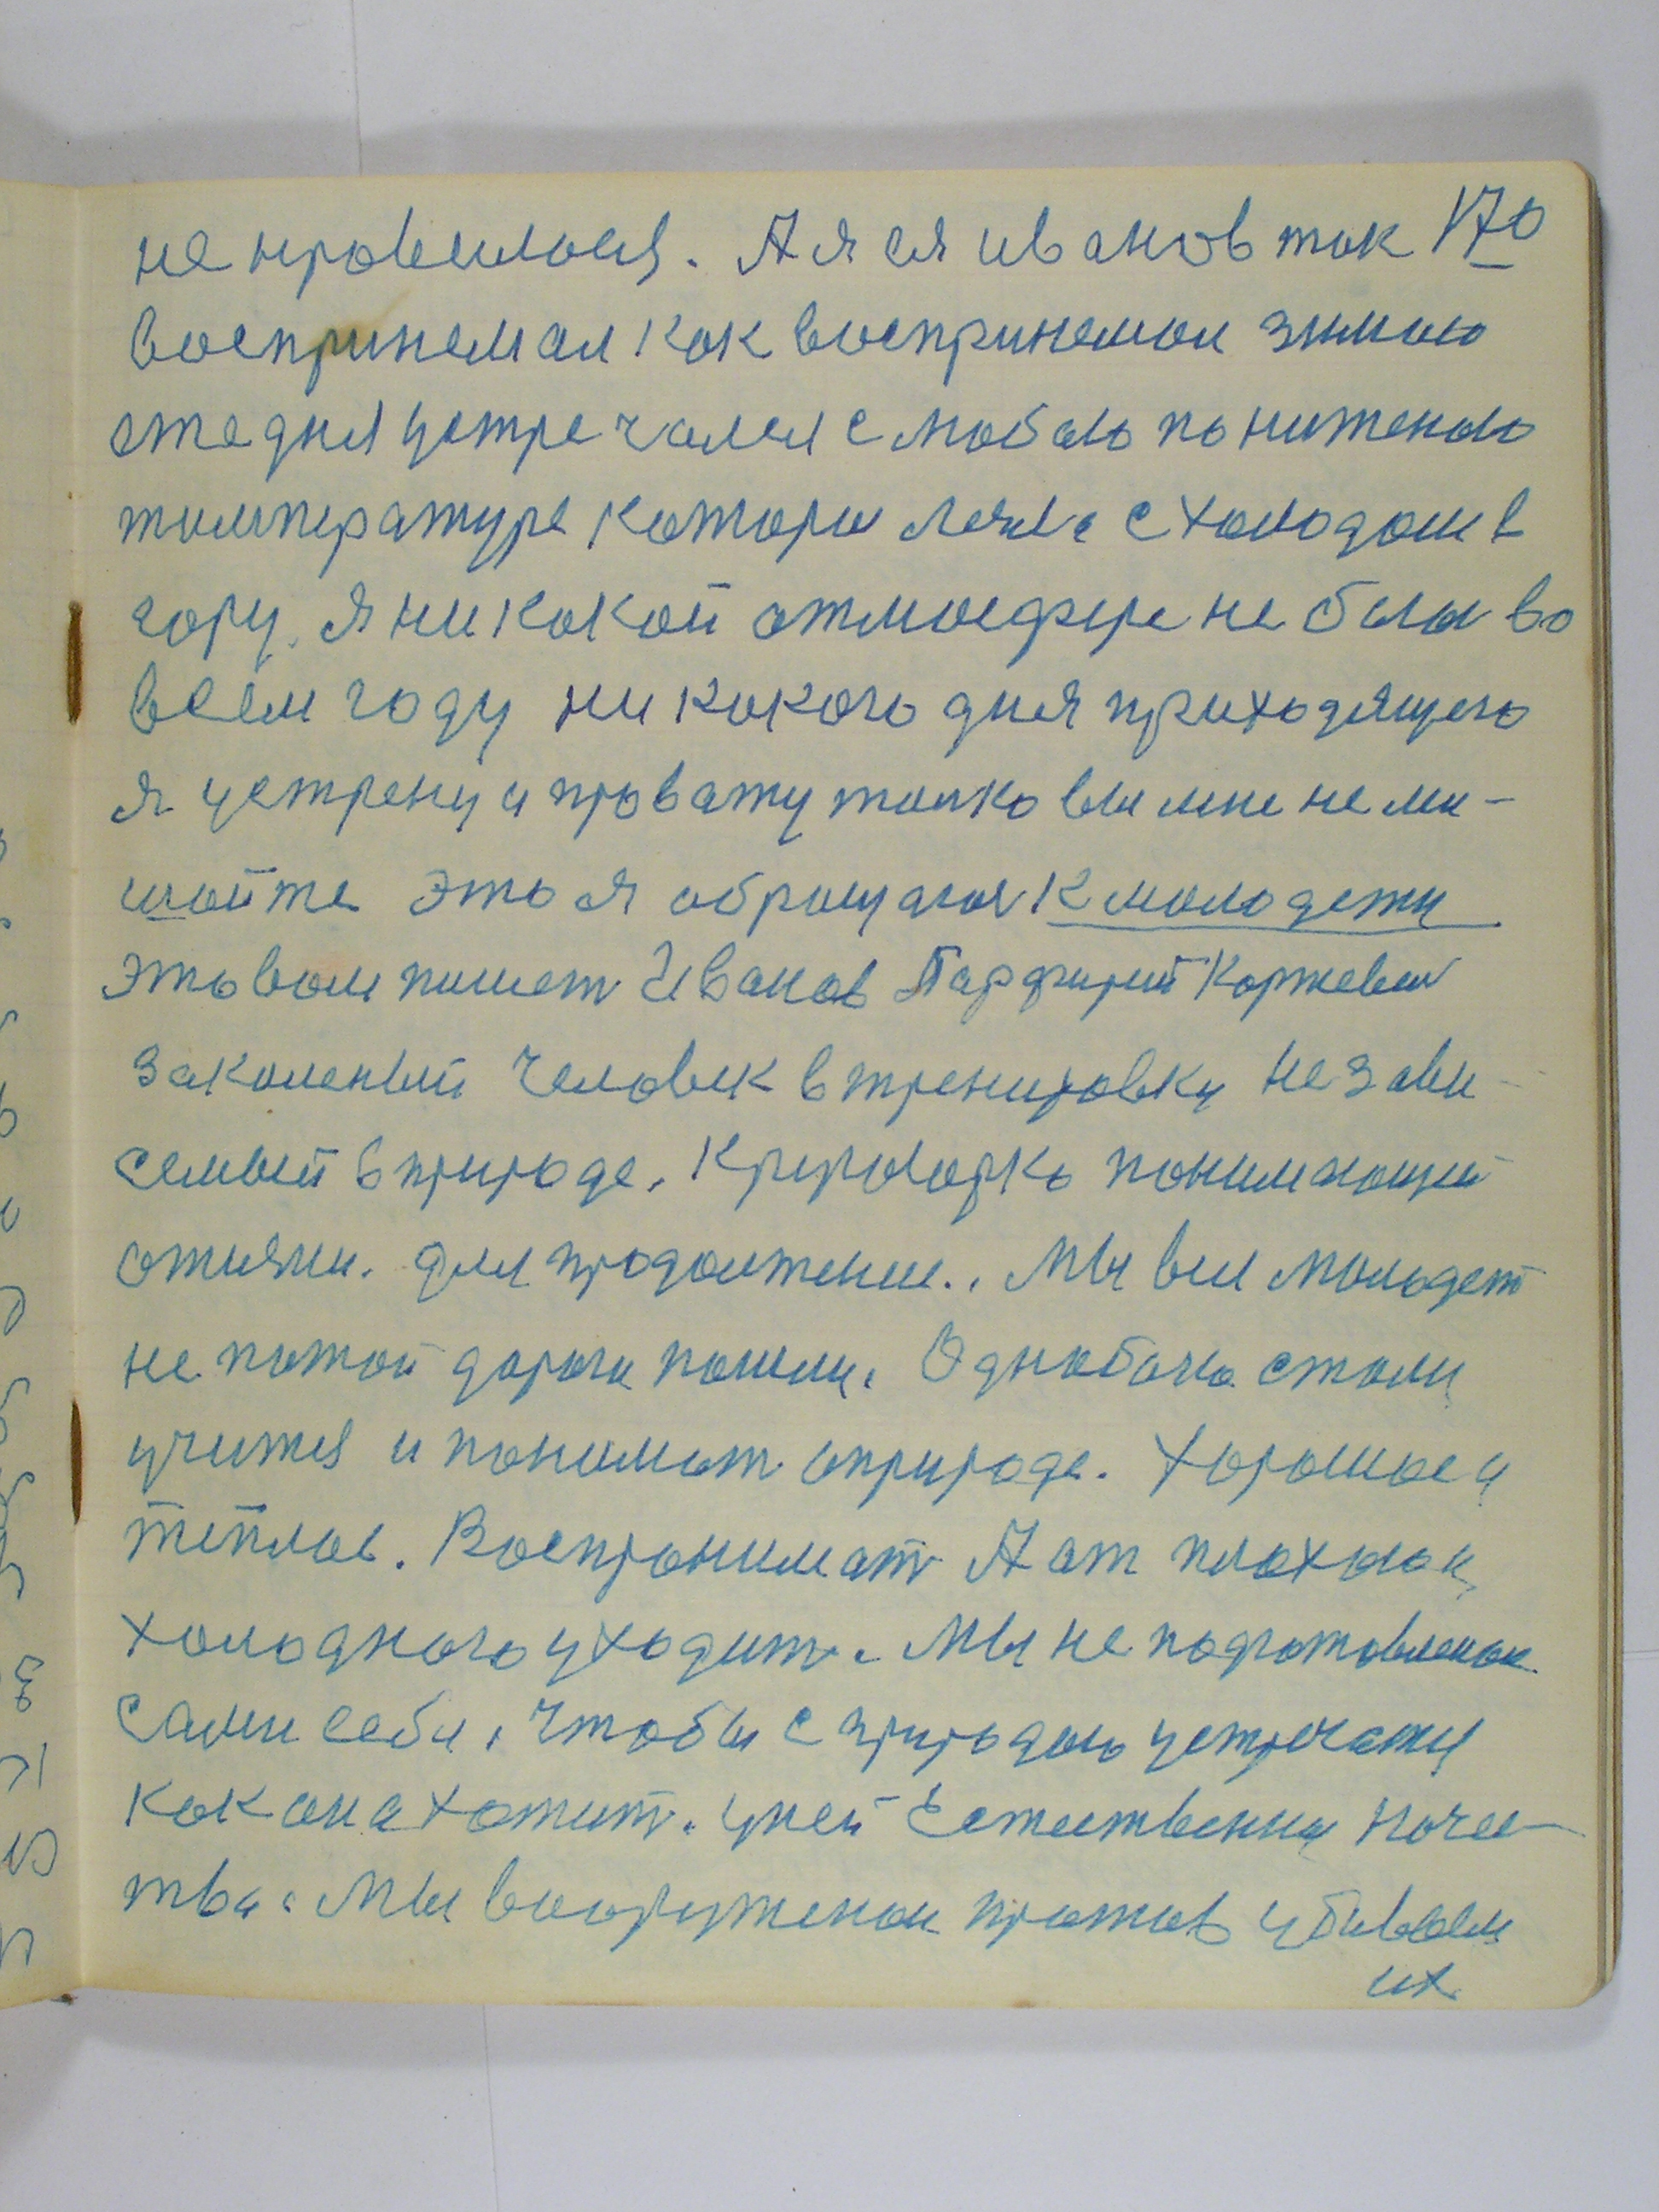 не нравилася. А я ся иванов так 170
воспринемал как воспринемал зимою
ежедня устречался с любою пониженою
температуре которы с холодом в
гору. я ни какой атмосфере не бы во
всем году ни какого дня приходящего
я устрену и проважу толко вы мне не ми-
шайте это я обращаюс к молодежи
это вам пишет Иванов Парфирий Корнеевич
закаленый человек в тренировки незави-
семый в природе. понимающий
для продолжение. Мы вси молодеж
не по той дороги пошли. Однабоко стали
учится и понимат оприроде. Хорошое и
теплое. Воспронимат А от плохого и
холодного уходит. Мы не подготовленые
сами себи, чтобы с природою устречатся
как она хотит. у ней Естественны качес-
тва. Мы вооружоные против убиваем
их.